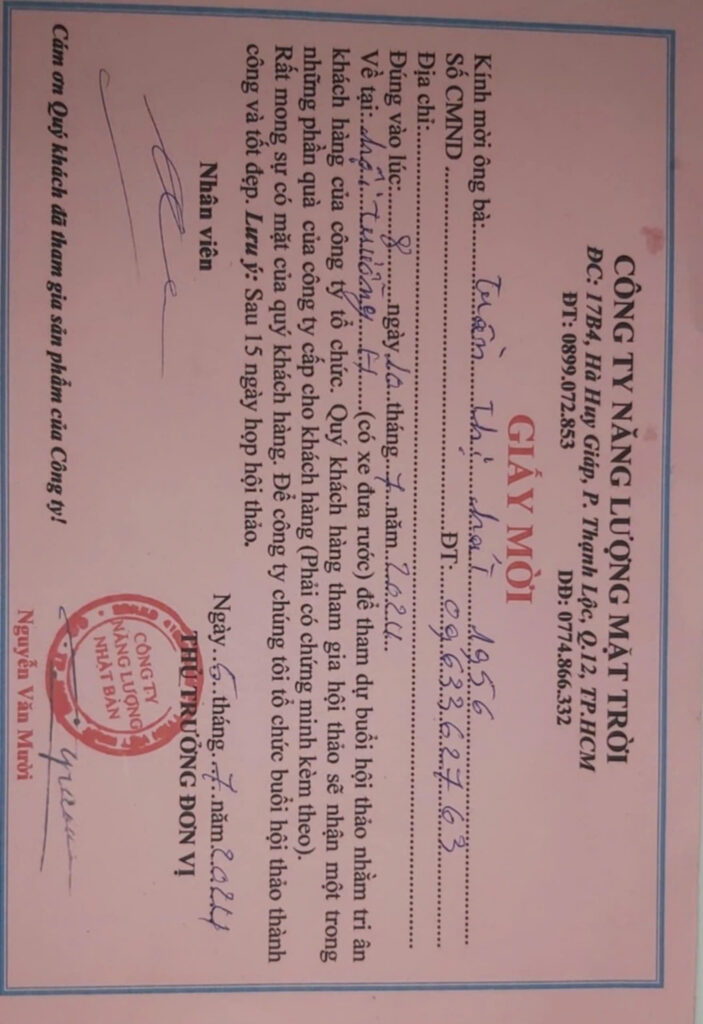 CÔNG TY NĂNG LƯỢNG MẶT TRỜI
ĐC: 17B4, Hà Huy Giáp, P. Thạnh Lộc, Q.12, TP.HCM
ĐT: 0899.072.853 DĐ: 0774.866.332
GIẤY MỜI
Kính mời ông bà: Trần Thị 1956
Số CMND ĐT: 0963362763
Địa chỉ:
Đúng vào lúc: 8 ngày 10 tháng 7 năm 2024
Về tại: Hội trường (có xe đưa rước) để tham dự buổi hội thảo nhằm tri ân
khách hàng của công ty tổ chức. Quý khách hàng tham gia hội thảo sẽ nhận một trong
những phần quà của công ty cấp cho khách hàng (Phải có chứng minh kèm theo).
Rất mong sự có mặt của quý khách hàng. Để công ty chúng tôi tổ chức buổi hội thảo thành
công và tốt đẹp. Lưu ý: Sau 15 ngày họp hội thảo.
Ngày 6 tháng 7 năm 2024
Nhân viên THỦ TRƯỞNG ĐƠN VỊ
CÔNG TY
NĂNG LƯỢNG
NHẬT BẢN
Nguyễn Văn Mười
Cám ơn Quý khách đã tham gia sản phẩm của Công ty!